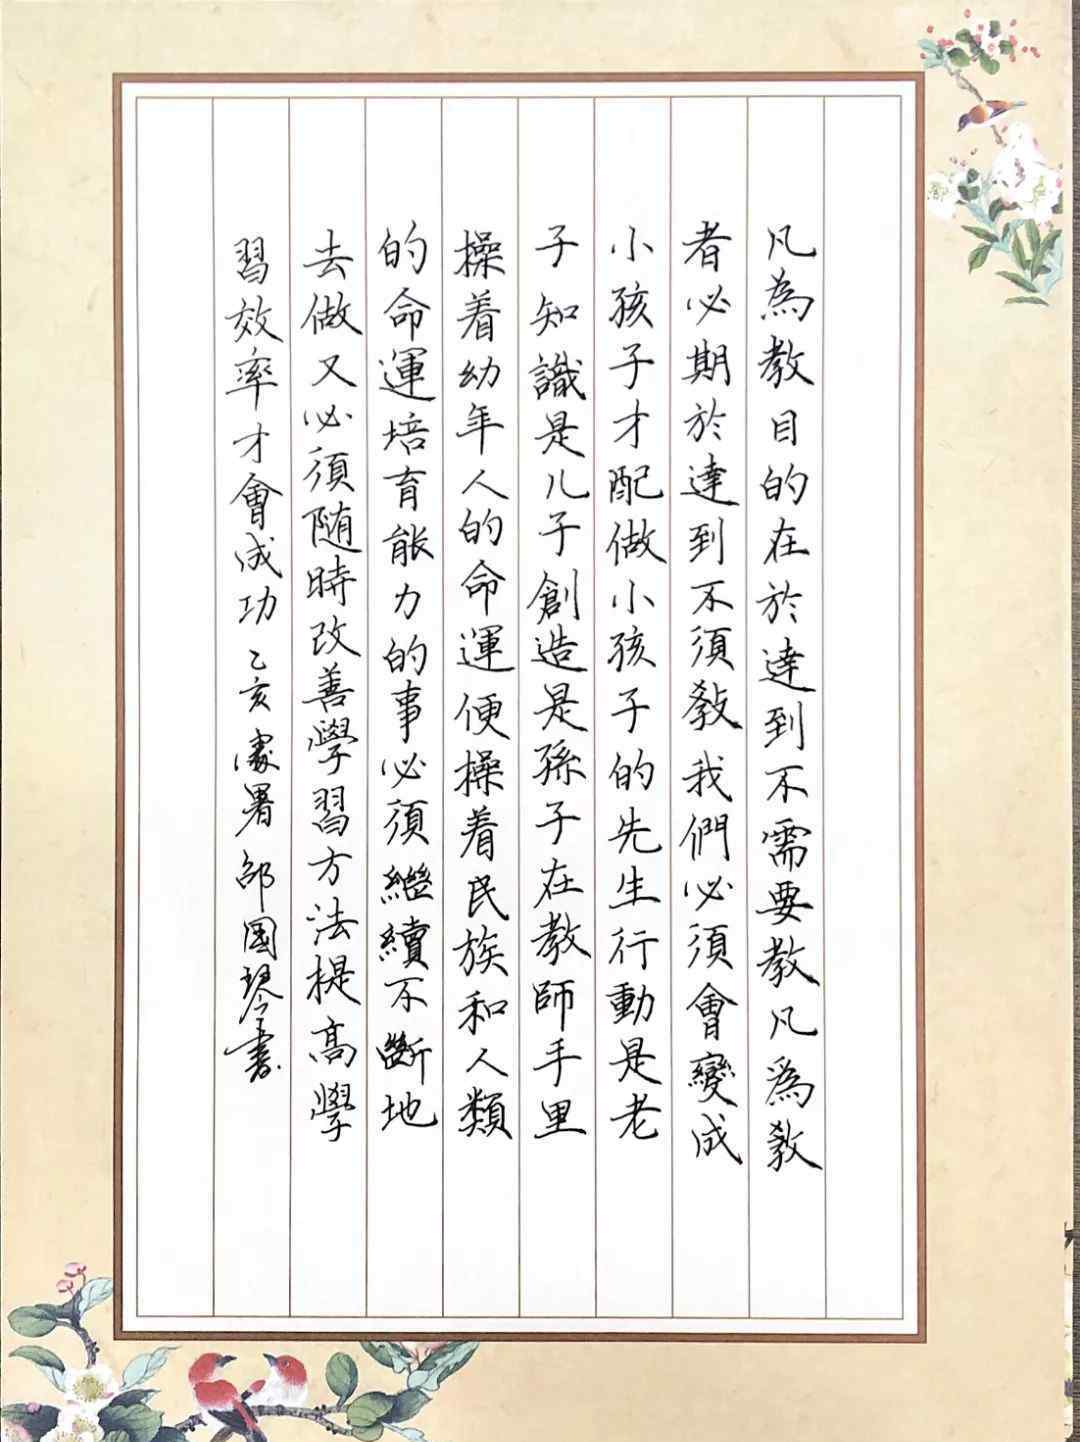 凡為教目的在於達到不需要教凡為教
者必期於達到不須教我們必須會變成
小孩子才配做小孩子的先生行動是老
子知識是儿子創造是孫子在教師手里
操着幼年人的命運便操着民族和人類
的命運培育能力的事必須繼續不斷地
去做又必須随時改善學習方法提高學
習效率才會成功乙亥處署邵國琴書